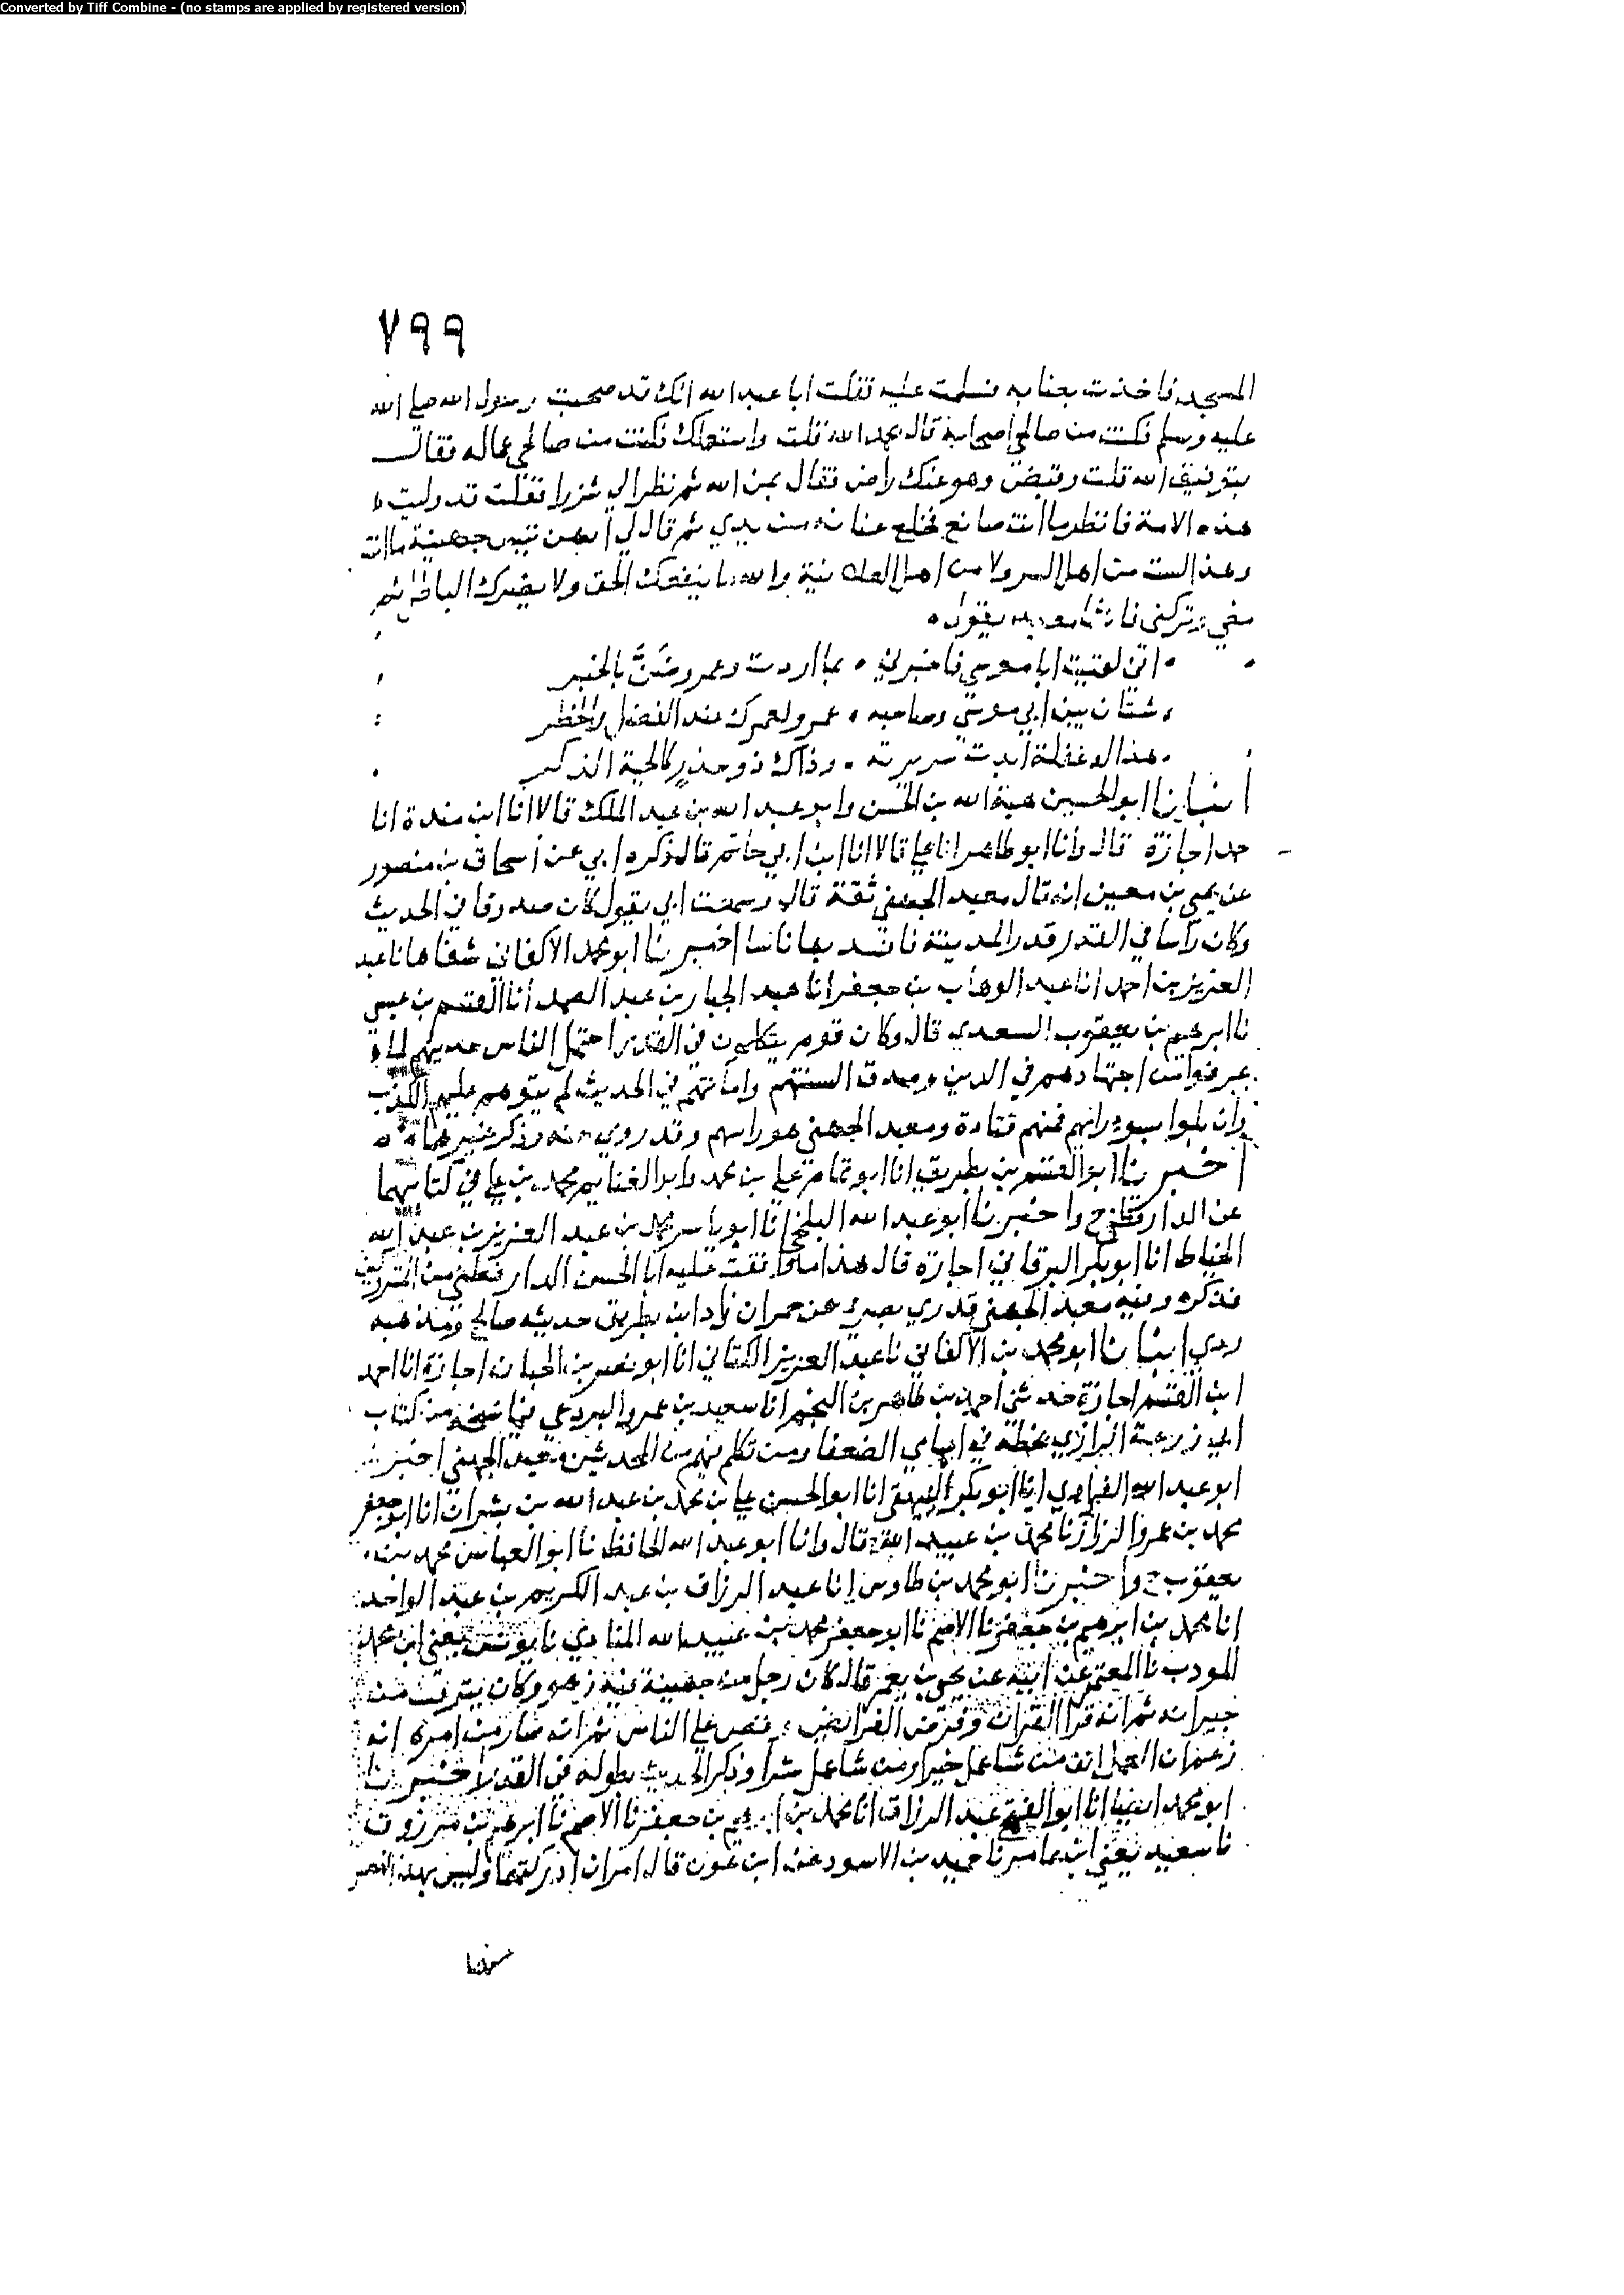 Converted by Tiff Combine - (no stamps are applied by registered version)
٧٩٩
المسجد فاخذت بعنانه فسلمت عليه فقلت ابا عبد الله انك قد صحبت رسول الله صلى الله
عليه وسلم فكنت من صالحي اصحابه قال بحمد الله قلت واستعملك فكنت من صالحي عماله فقال
بتوفيق الله قلت وقبض وهو عنك راض فقال بمن الله ثم نظر الي شزرا فقلت قد وليت
هذه الامة فانظر ما انت صانع فخلع عنانه من يدي ثم قال لي ايهن تيس جهينة ما انت
وهذا لست من اهل السر ولا من اهل العلانية والله ما ينفعك الحق ولا يضرك الباطل ثم
مضى وتركني فانشا معبد يقول
اني لقيت ابا موسى فاخبرني بما اردت وعمرو ضن بالخبر
شتان بين ابي موسى وصاحبه عمرو لعمرك عند الفضل والخطر
هذا له غفلة ابدت سريرته وذاك ذو حذر كالحية الذكر
أنبانا ابو الحسين هبة الله بن الحسن وابو عبد الله بن عبد الملك قالا انا ابن مندة انا
حمد اجازة قال وانا ابو طاهر انا علي قالا انا ابن ابي حاتم قال ذكره ابي عن اسحاق بن منصور
عن يحيى بن معين انه قال معبد الجهني ثقة قال وسمعت ابي يقول كان صدوقا في الحديث
وكان راسا في القدر قدم المدينة فافسد بها ناسا اخبرنا ابو محمد الاكفاني شفاها نا عبد
العزيز بن احمد انا عبد الوهاب بن جعفر انا عبد الجبار بن عبد الصمد انا القسم بن عيسى
نا ابرهيم بن يعقوب السعدي قال وكان قوم يتكلمون في القدر احتمل الناس حديثهم لما
عرفوا من اجتهادهم في الدين وصدق السنتهم وامانتهم في الحديث لم يتوهم عليهم الكذب
وان بلوا بسوء رايهم فمنهم قتادة ومعبد الجهني هو راسهم وقد روي عنه وذكر غيرهما
أخبرنا ابو القسم بن بطريق انا ابو تمام علي بن محمد وابو الغنايم محمد بن علي في كتابيهما
عن الدارقطني ح واخبرنا ابو عبد الله البلخي انا ابو ياسر محمد بن عبد العزيز بن عبد الله
الخياط انا ابو بكر البرقاني اجازة قال هذا ما وافقت عليه ابا الحسن الدارقطني من المتروكين
فذكره وفيه معبد الجهني قدري بصري عن عمران زاد ابن بطريق حديثه صالح ومذهبه
ردي انبانا ابو محمد بن الاكفاني نا عبد العزيز الكتاني انا ابو نصر بن الجبان اجازة انا احمد
ابن القسم اجازة حدثني احمد بن طاهر بن النجم انا سعيد بن عمرو البردعي فيما نسخه من كتاب
ابي زرعة الرازي بخطه في اسامي الضعفا ومن تكلم فيهم من المحدثين معبد الجهني اخبرنا
ابو عبد الله الفراوي انا ابو بكر البيهقي انا ابو الحسين علي بن محمد بن عبد الله بن بشران انا ابو جعفر
محمد بن عمرو الرزاز نا محمد بن عبيد الله قال وانا ابو عبد الله الحافظ نا ابو العباس محمد بن
يعقوب ح واخبرنا ابو محمد بن طاوس انا عبد الرزاق بن عبد الكريم بن عبد الواحد
انا محمد بن ابرهيم بن جعفر نا الاصم نا ابو جعفر محمد بن عبيد الله المنادي نا يونس يعني ابن محمد
المودب نا المعتمر عن ابيه عن يحيى بن يعمر قال كان رجل من جهينة فيه زهو وكان يتوثب على
جيرانه ثم انه قرا القران وفرض الفرائض وقص على الناس ثم انه صار من امره انه
زعم ان العمل انف من شا عمل خيرا ومن شا عمل شرا وذكر الحديث بطوله في القدر اخبرنا
ابو محمد ايضا انا ابو الفتح عبد الرزاق انا محمد بن ابرهيم بن جعفر نا الاصم نا ابرهيم بن مرزوق
نا سعيد يعني ابن عامر نا حميد بن الاسود عن ابن عون قال امران ادركتهما وليس بهذا المصر
منهما